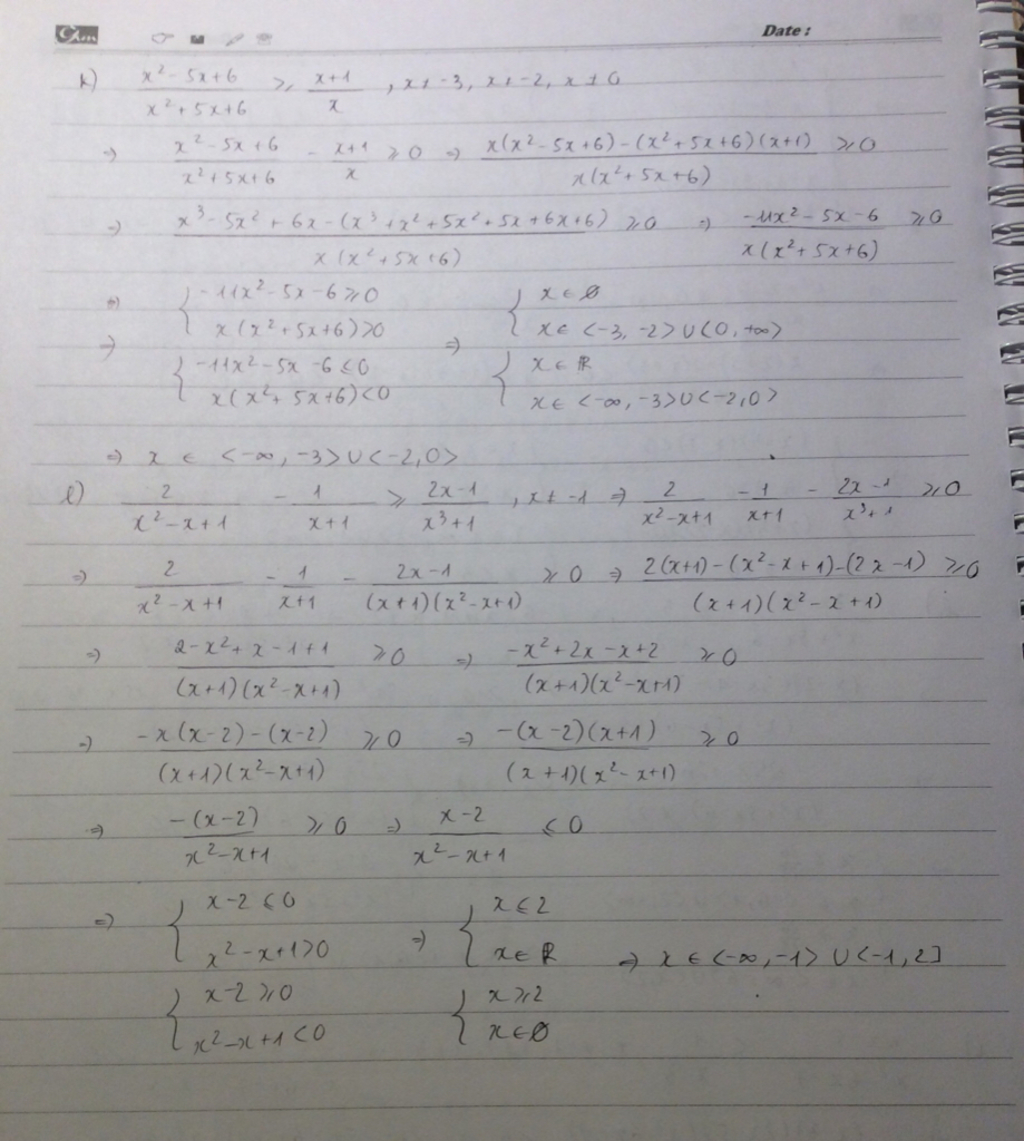 Date :
k) \frac{x^2-5x+6}{x^2+5x+6} ⩾ \frac{x+1}{x} , x ≠ -3, x ≠ -2, x ≠ 0
⇒ \frac{x^2-5x+6}{x^2+5x+6} - \frac{x+1}{x} ⩾ 0 ⇒ \frac{x(x^2-5x+6)-(x^2+5x+6)(x+1)}{x(x^2+5x+6)} ⩾ 0
⇒ \frac{x^3-5x^2+6x-(x^3+x^2+5x^2+5x+6x+6)}{x(x^2+5x+6)} ⩾ 0 ⇒ \frac{-11x^2-5x-6}{x(x^2+5x+6)} ⩾ 0
⇒ { -11x^2-5x-6 ⩾ 0 { x ∈ ∅
x(x^2+5x+6) > 0 x ∈ <-3, -2> ∪ <0, +∞>
⇒ { -11x^2-5x-6 ⩽ 0 ⇒ { x ∈ ℝ
x(x^2+5x+6) < 0 x ∈ <-∞, -3> ∪ <-2, 0>
⇒ x ∈ <-∞, -3> ∪ <-2, 0>
l) \frac{2}{x^2-x+1} - \frac{1}{x+1} ⩾ \frac{2x-1}{x^3+1} , x ≠ -1 ⇒ \frac{2}{x^2-x+1} - \frac{1}{x+1} - \frac{2x-1}{x^3+1} ⩾ 0
⇒ \frac{2}{x^2-x+1} - \frac{1}{x+1} - \frac{2x-1}{(x+1)(x^2-x+1)} ⩾ 0 ⇒ \frac{2(x+1)-(x^2-x+1)-(2x-1)}{(x+1)(x^2-x+1)} ⩾ 0
⇒ \frac{2-x^2+x-1+1}{(x+1)(x^2-x+1)} ⩾ 0 ⇒ \frac{-x^2+2x-x+2}{(x+1)(x^2-x+1)} ⩾ 0
⇒ \frac{-x(x-2)-(x-2)}{(x+1)(x^2-x+1)} ⩾ 0 ⇒ \frac{-(x-2)(x+1)}{(x+1)(x^2-x+1)} ⩾ 0
⇒ \frac{-(x-2)}{x^2-x+1} ⩾ 0 ⇒ \frac{x-2}{x^2-x+1} ⩽ 0
⇒ { x-2 ⩽ 0 { x ⩽ 2
x^2-x+1 > 0 ⇒ x ∈ ℝ ⇒ x ∈ <-∞, -1> ∪ <-1, 2]
{ x-2 ⩾ 0 { x ⩾ 2
x^2-x+1 < 0 x ∈ ∅